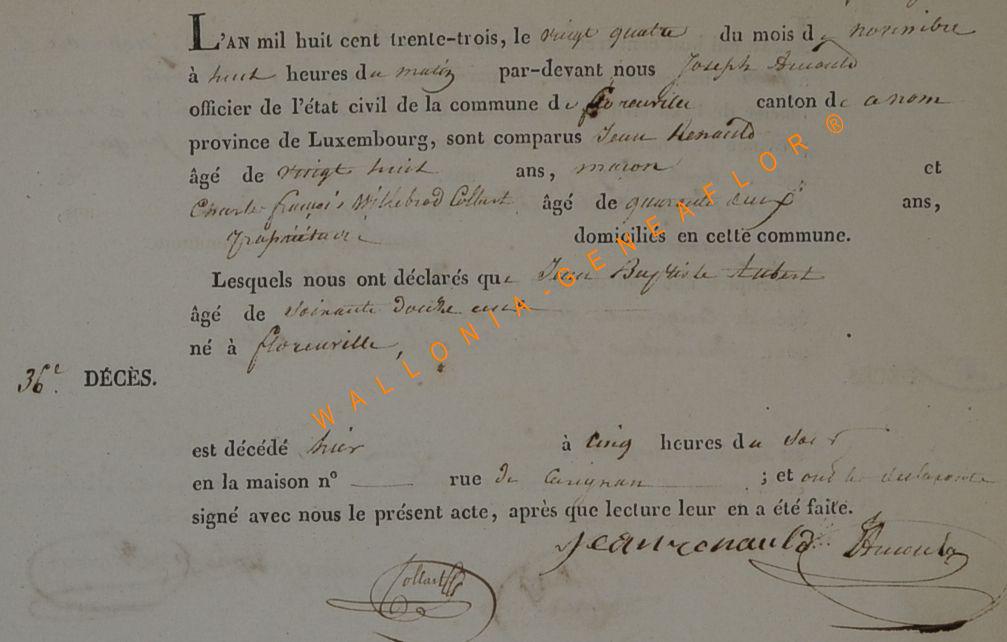 L'AN mil huit cent trente-trois, le vingt quatre du mois de novembre
à huit heures du matin par-devant nous Joseph Arnould
officier de l'état civil de la commune de florenville canton de ce nom
province de Luxembourg, sont comparus Jean Renauld
âgé de vingt huit ans, maçon et
Charle françois Willebrod Collart âgé de quarante deux ans,
propriétaire domiciliés en cette commune.
Lesquels nous ont déclarés que Jean Baptiste Aubert
âgé de soixante douze ans
né à florenville,
36e. DÉCÈS.
est décédé hier à cinq heures du soir
en la maison nº rue de Carignan ; et ont les déclarants
signé avec nous le présent acte, après que lecture leur en a été faite.
Jean renauld Arnould
Collart
WALLONIA-GENEAFLOR ®